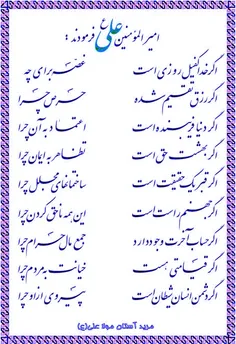 امیرالمؤمنین علی ع فرمودند :
اگر خدا کفیل روزی است غصه برای چه
اگر رزق تقسیم شده حرص چرا
اگر دنیا فریبنده است اعتماد به آن چرا
اگر بهشت حق است تظاهر به ایمان چرا
اگر قبر یک حقیقت است ساختمانهای مجلل چرا
اگر جهنم راست است این همه ناحق کردن چرا
اگر حساب آخرت وجود دارد جمع مال حرام چرا
اگر قیامتی هست خیانت به مردم چرا
اگر دشمن انسان شیطان است پیروی از او چرا
مرید آستان مولا علی(ع)